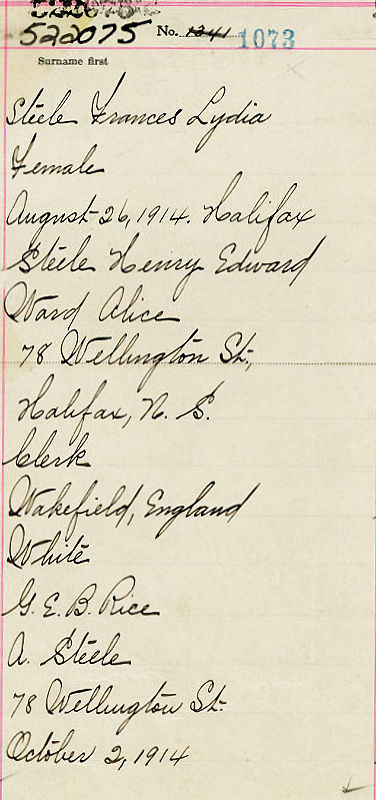 522075 No. 1241 1073
Surname first
Steele Frances Lydia
Female
August 26, 1914. Halifax
Steele Henry Edward
Ward Alice
78 Wellington St.,
Halifax, N. S.
Clerk
Wakefield, England
White
G. E. B. Rice
A. Steele
78 Wellington St.
October 2, 1914